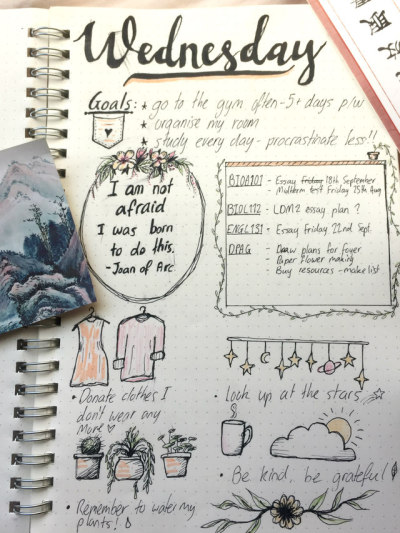 Wednesday
Goals: ★ go to the gym often - 5+ days p/w
★ organise my room
★ study every day - procrastinate less!!
I am not
afraid
I was born
to do this.
- Joan of Arc
BIOA101 - Essay friday 18th September
- Midterm test Friday 25th Aug
BIOL112 - LDM2 essay plan ?
ENGL131 - Essay friday 22nd Sept.
DPAG - Draw plans for foyer
- Paper flower making
- Buy resources - make list
• Donate clothes I
don't wear any
more ♡
• Look up at the stars
• Be kind, be grateful
• Remember to water my
plants!
取